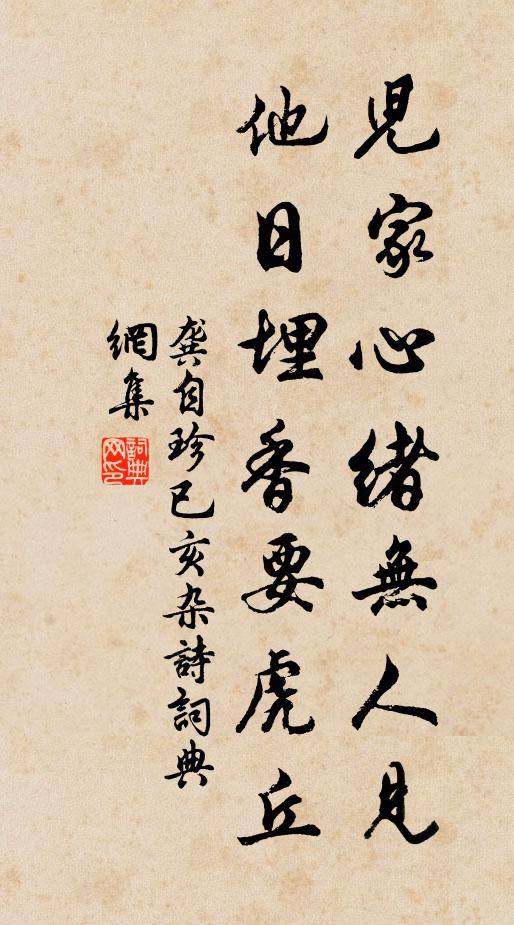 兒家心緒無人見
他日埋香要虎丘
龔自珍已亥杂詩詞典
網集
詞典
网印